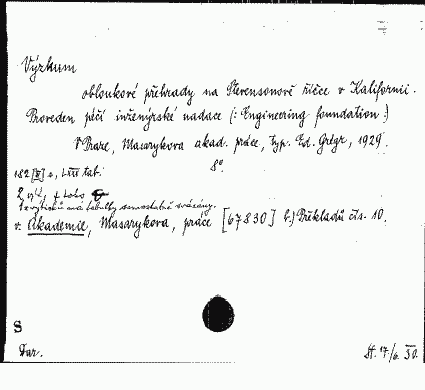 Výzkum
obloukové přehrady na Stevensonově říčce v Kalifornii.
Proveden péčí inženýrské nadace (: Engineering foundation :)
V Praze, Masarykova akad. práce, typ. Ed. Grégr, 1929.
8°.
182 [II] s., LIII tab.
2 výt., z toho
1 výtisků má tabulky samostatně svázány.
v. Akademie, Masarykova, práce [67830] b.) Překladů čís. 10.
S
Dar.
St. 17/6. 30.